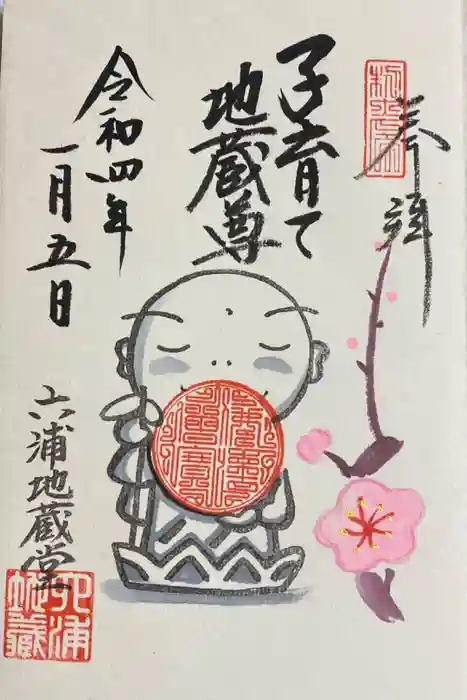 奉拝
子育て
地蔵尊
令和四年
一月五日
六浦地蔵堂
六浦
地蔵